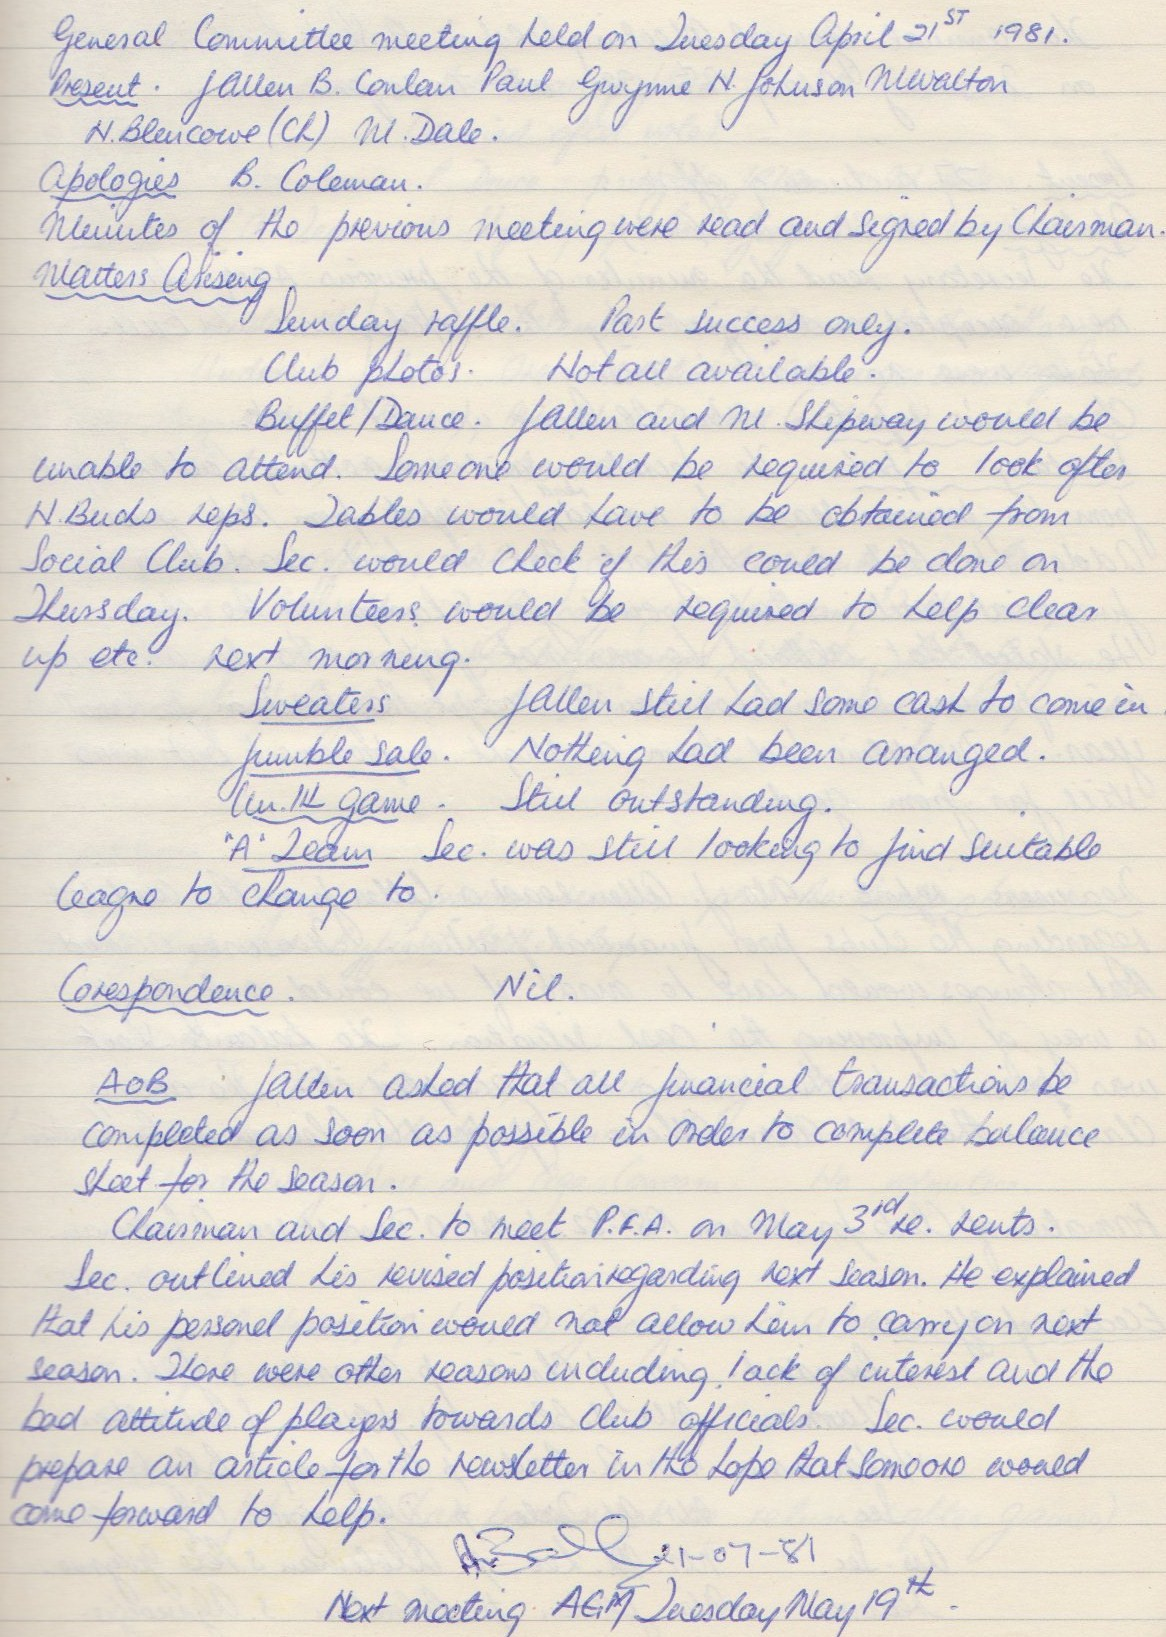 General Committee meeting held on Tuesday April 21ST 1981.
Present. J Allen B. Conlan Paul Gwynne N. Johnson M Walton
N. Blencowe (Ch) M. Dale.
Apologies B. Coleman.
Minutes of the previous meeting were read and signed by Chairman.
Matters Arising
Sunday raffle. Part success only.
Club photos. Not all available.
Buffet/Dance. J Allen and M. Shipway would be
unable to attend. Someone would be required to look after
N. Bucks reps. Tables would have to be obtained from
Social Club. Sec. would check if this could be done on
Thursday. Volunteers would be required to help clear
up etc. next morning.
Sweaters J Allen still had some cash to come in.
Jumble sale. Nothing had been arranged.
Un. 14 game. Still outstanding.
"A" Team Sec. was still looking to find suitable
league to change to.
Corespondence. Nil.
AOB J Allen asked that all financial transactions be
completed as soon as possible in order to complete balance
sheet for the season.
Chairman and Sec. to meet P.F.A. on May 3rd re. rents.
Sec. outlined his revised position regarding next season. He explained
that his personal position would not allow him to carry on next
season. There were other reasons including lack of interest and the
bad attitude of players towards club officials. Sec. would
prepare an article for the newsletter in the hope that someone would
come forward to help.
21-07-81
Next meeting AGM Tuesday May 19th.